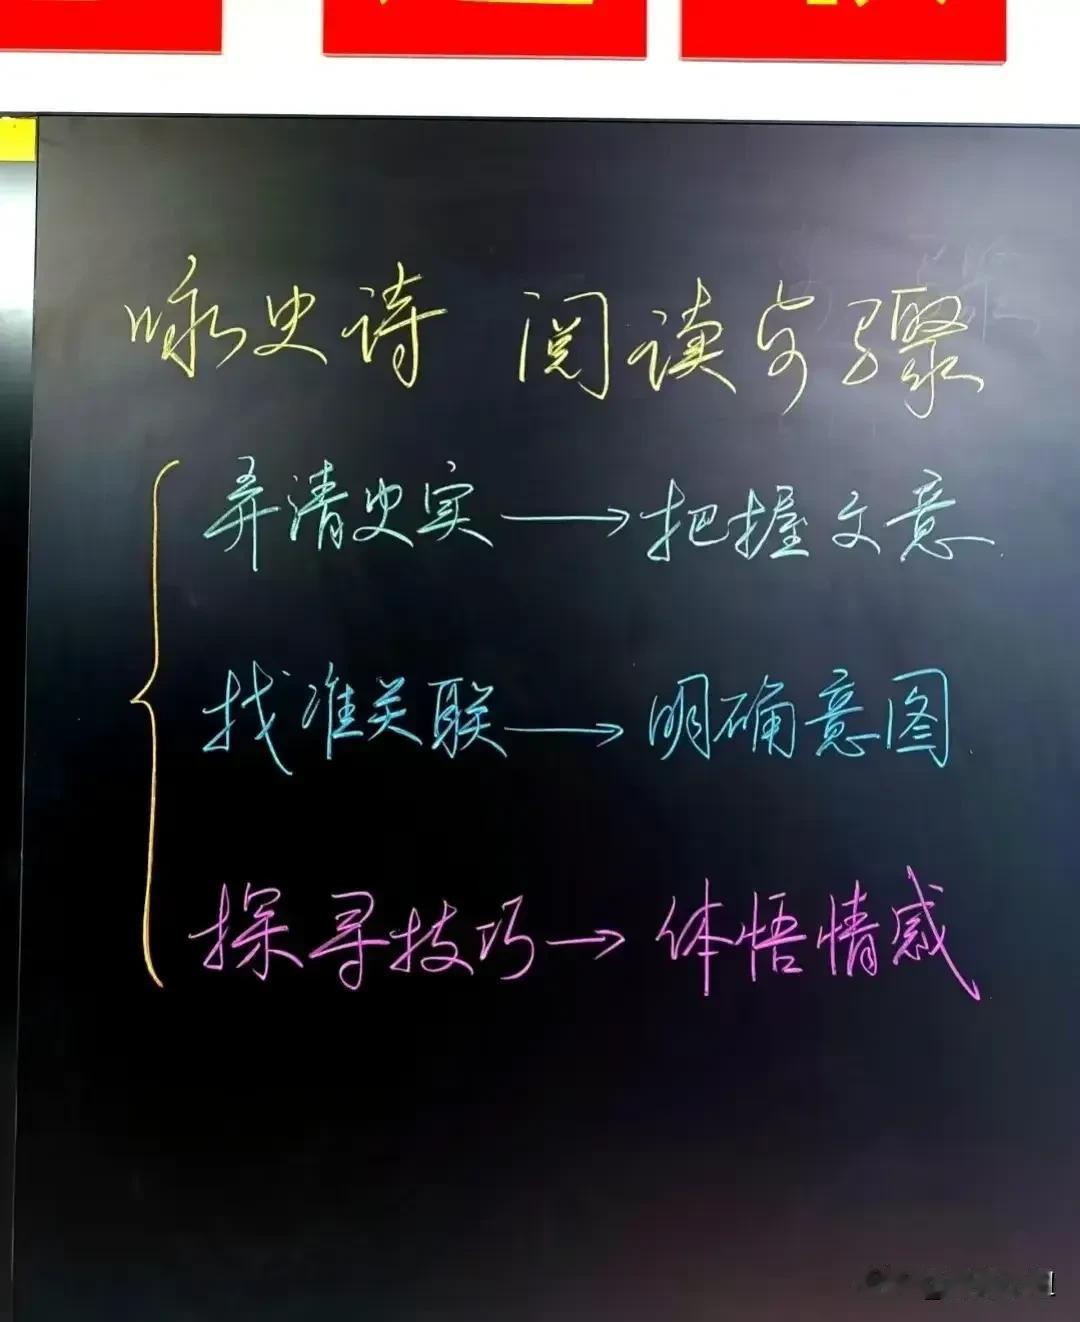 咏史诗 阅读步骤
弄清史实→把握文意
找准关联→明确意图
探寻技巧→体悟情感